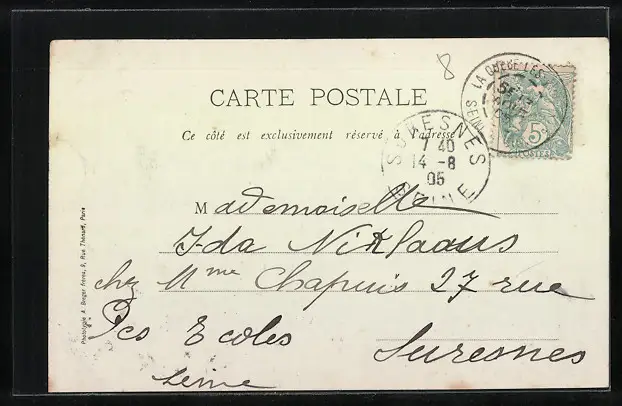 8
CARTE POSTALE
Ce côté est exclusivement réservé à l'adresse
LA QUEUE-LES
SEINE
5c
POSTES
SURESNES
7 40
14 -8
05
SEINE
Mademoiselle
Ida Niklaous
chez Mme Chapuis 27 rue
des Ecoles Suresnes
Seine
Phototypie A. Breger Frères, 9, Rue Thénard, Paris